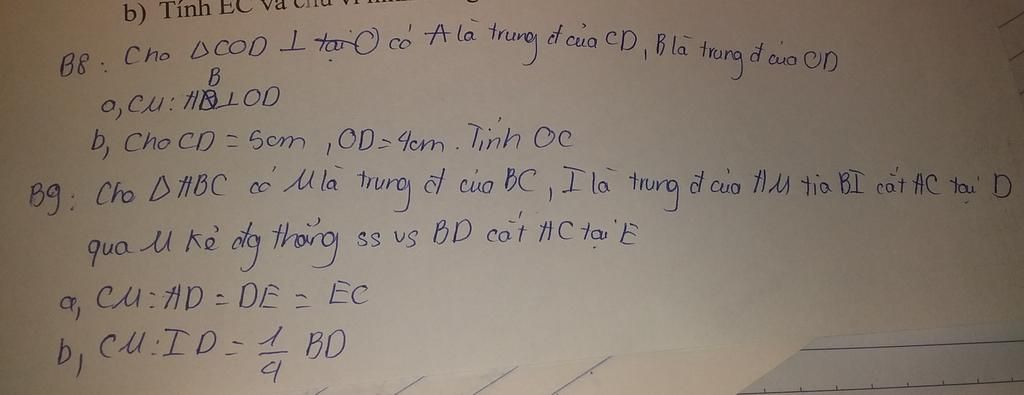 b) Tính EC và chu vi
B8: Cho ΔCOD ⊥ tại O có A là trung đ của CD, B là trung đ của OD
a, CM: AB ⊥ OD
b, Cho CD = 5cm, OD = 4cm. Tính OC
B9: Cho ΔABC có M là trung đ của BC, I là trung đ của AM tia BI cắt AC tại D
qua M kẻ đg thẳng ss vs BD cắt AC tại E
a, CM: AD = DE = EC
b, CM: ID = 1/4 BD